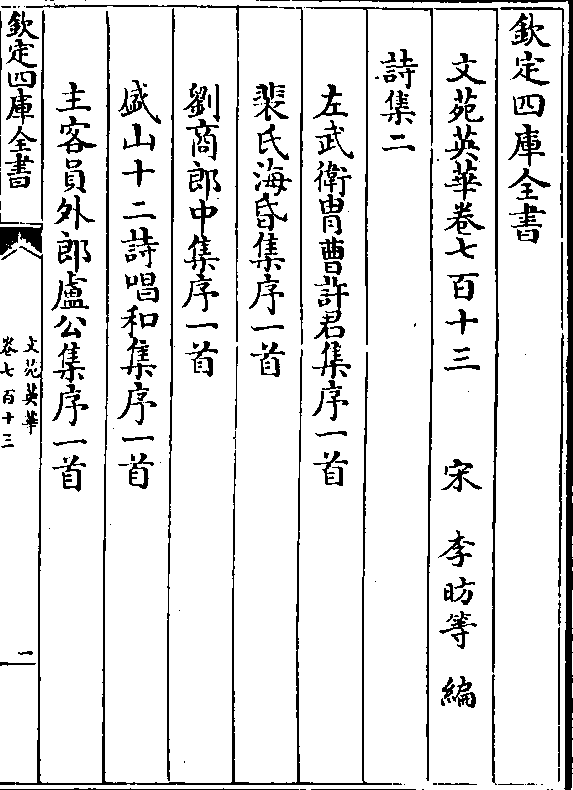 欽定四庫全書
文苑英華卷七百十三 宋 李昉等 編
詩集二
左武衛胄曹許君集序一首
裴氏海昏集序一首
劉商郎中集序一首
盛山十二詩唱和集序一首
主客員外郎盧公集序一首
欽定四庫全書
文苑英華
卷七百十三
一